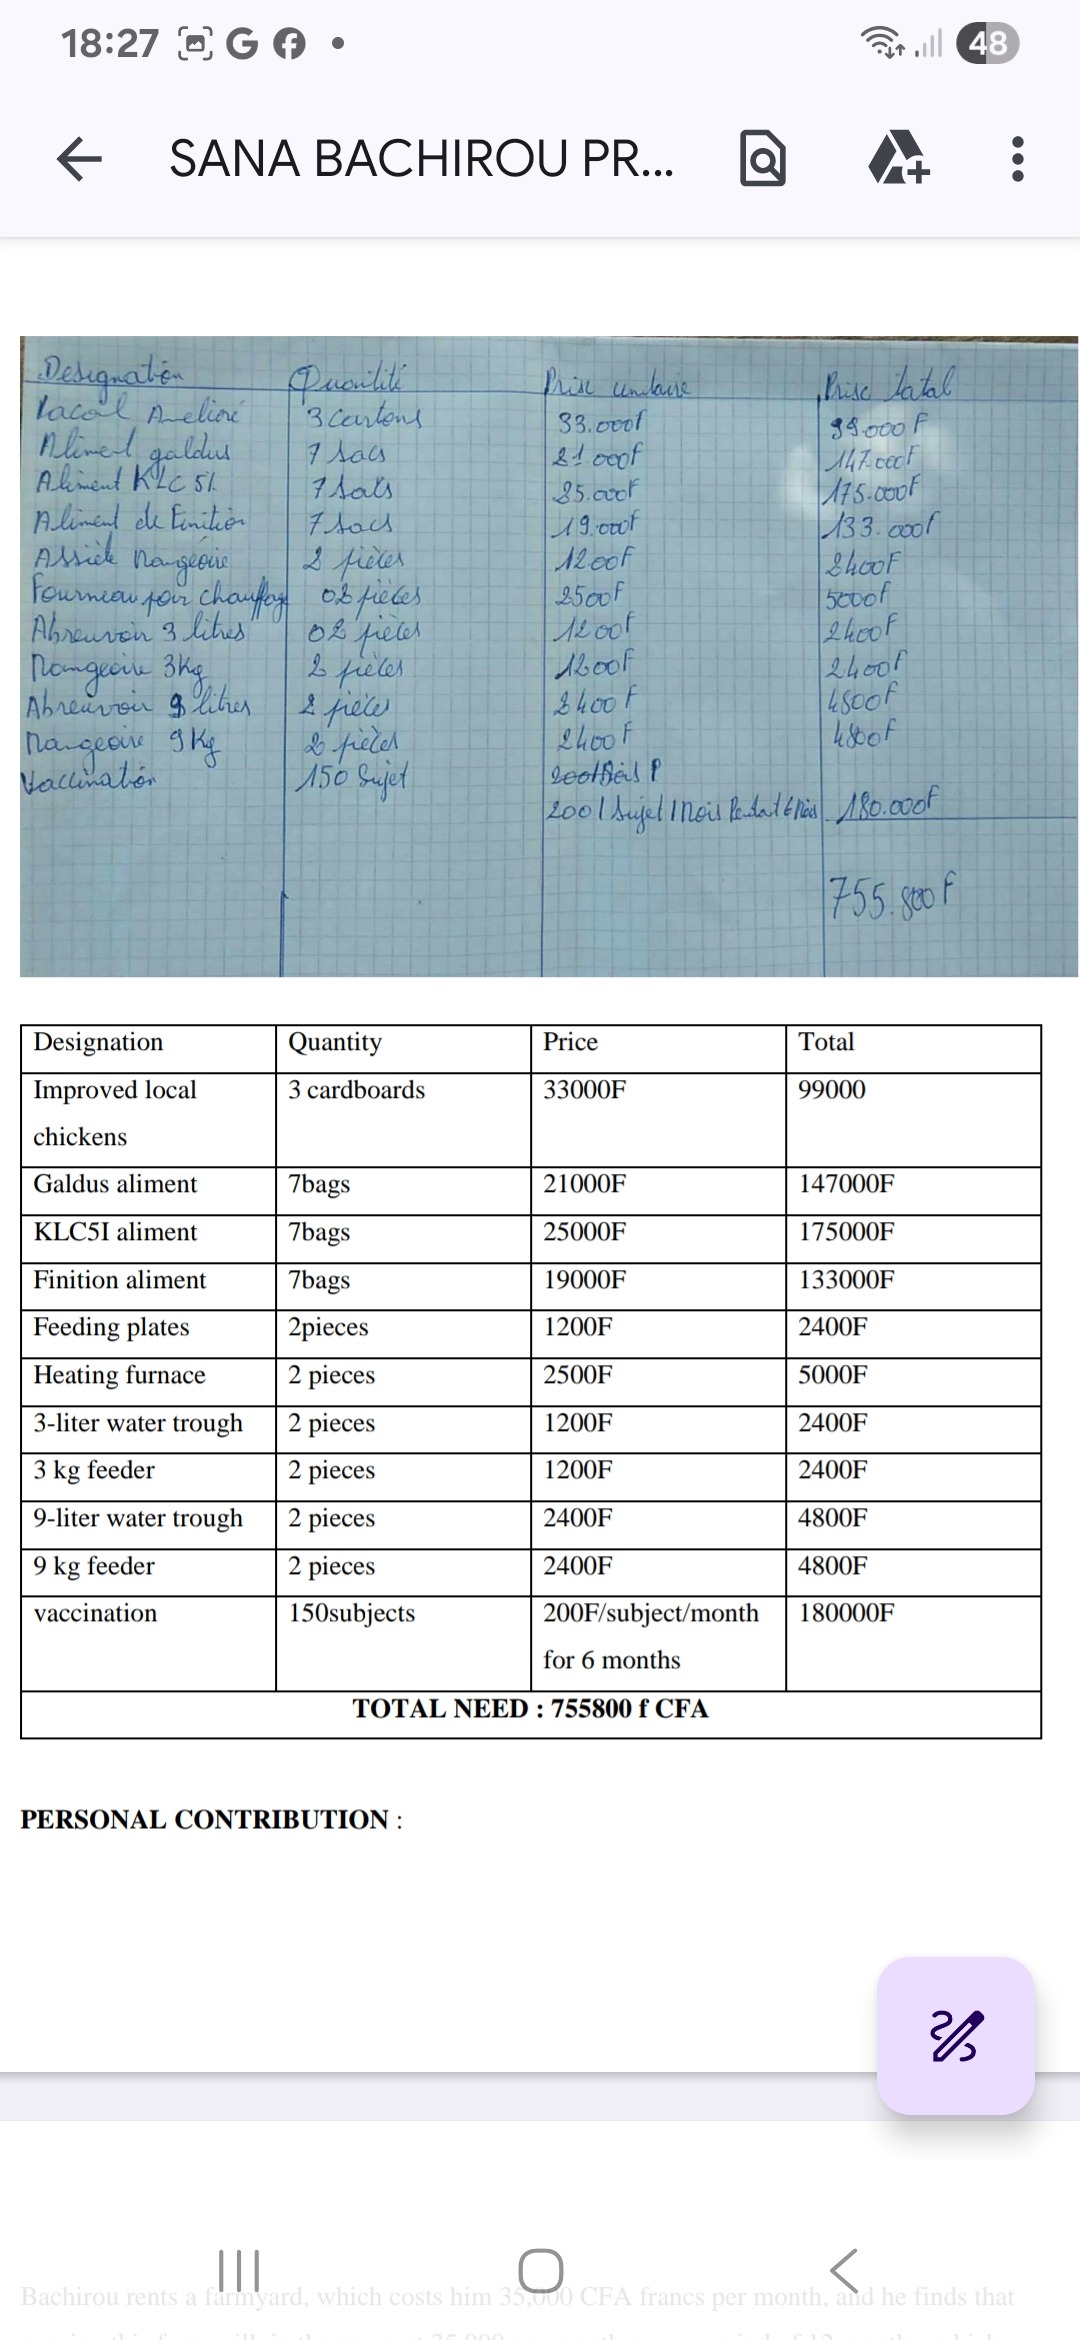 18:27 G f •
48
SANA BACHIROU PR...
Designation Quantité Prix unitaire Prix total
Local Amelioré 3 Cartons 33.000f 99.000 F
Aliment galdus 7 Sacs 21.000f 147.000F
Aliment KLC 5% 7 Sacs 25.000F 175.000F
Aliment de Finition 7 Sacs 19.000f 133.000f
Assiète Mangeoire 2 pièces 1200F 2400F
Fourneau pour chauffage 02 pièces 2500F 5000f
Abreuvoir 3 litres 02 pièces 1200f 2400f
Mangeoire 3Kg 2 pièces 1200F 2400F
Abreuvoir 9 litres 2 pièces 2400 F 4800F
Mangeoire 9Kg 2 pièces 2400 F 4800F
Vaccination 150 Sujet
200/Sujet/Mois Pendant 6 Mois 180.000F
755.800 F
Designation Quantity Price Total
Improved local 3 cardboards 33000F 99000
chickens
Galdus aliment 7bags 21000F 147000F
KLC5I aliment 7bags 25000F 175000F
Finition aliment 7bags 19000F 133000F
Feeding plates 2pieces 1200F 2400F
Heating furnace 2 pieces 2500F 5000F
3-liter water trough 2 pieces 1200F 2400F
3 kg feeder 2 pieces 1200F 2400F
9-liter water trough 2 pieces 2400F 4800F
9 kg feeder 2 pieces 2400F 4800F
vaccination 150subjects 200F/subject/month 180000F
for 6 months
TOTAL NEED : 755800 f CFA
PERSONAL CONTRIBUTION :
Bachirou rents a farmyard, which costs him 35,000 CFA francs per month, and he finds that